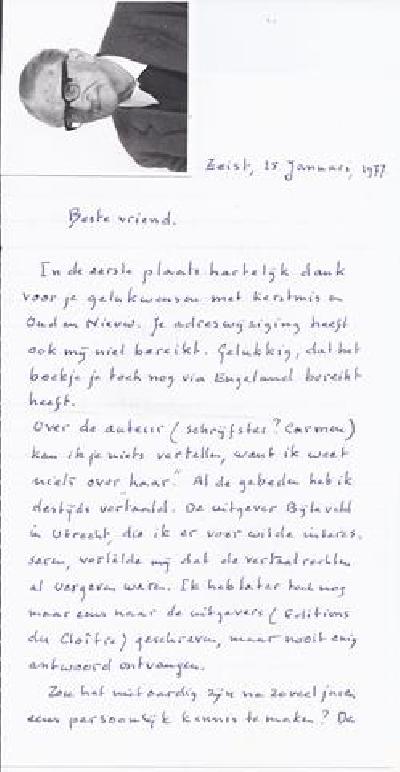 Zeist, 25 Januari, 1977
Beste vriend.
In de eerste plaats hartelijk dank
voor je gelukwensen met Kerstmis en
Oud en Nieuw. Je adreswijziging heeft
ook mij niet bereikt. Gelukkig, dat het
boekje je toch nog via Engeland bereikt
heeft.
Over de auteur (schrijfster? Carmen)
kan ik je niets vertellen, want ik weet
niets over "haar." Al de gebeden heb ik
destijds vertaald. De uitgever Bijleveld
in Utrecht, die ik er voor wilde interes-
seren, vertelde mij dat de vertaalrechten
al vergeven waren. Ik heb later toch nog
maar eens naar de uitgevers (Editions
du Cloître) geschreven, maar nooit enig
antwoord ontvangen.
Zou het niet aardig zijn na zoveel jaren
eens persoonlijk kennis te maken? De